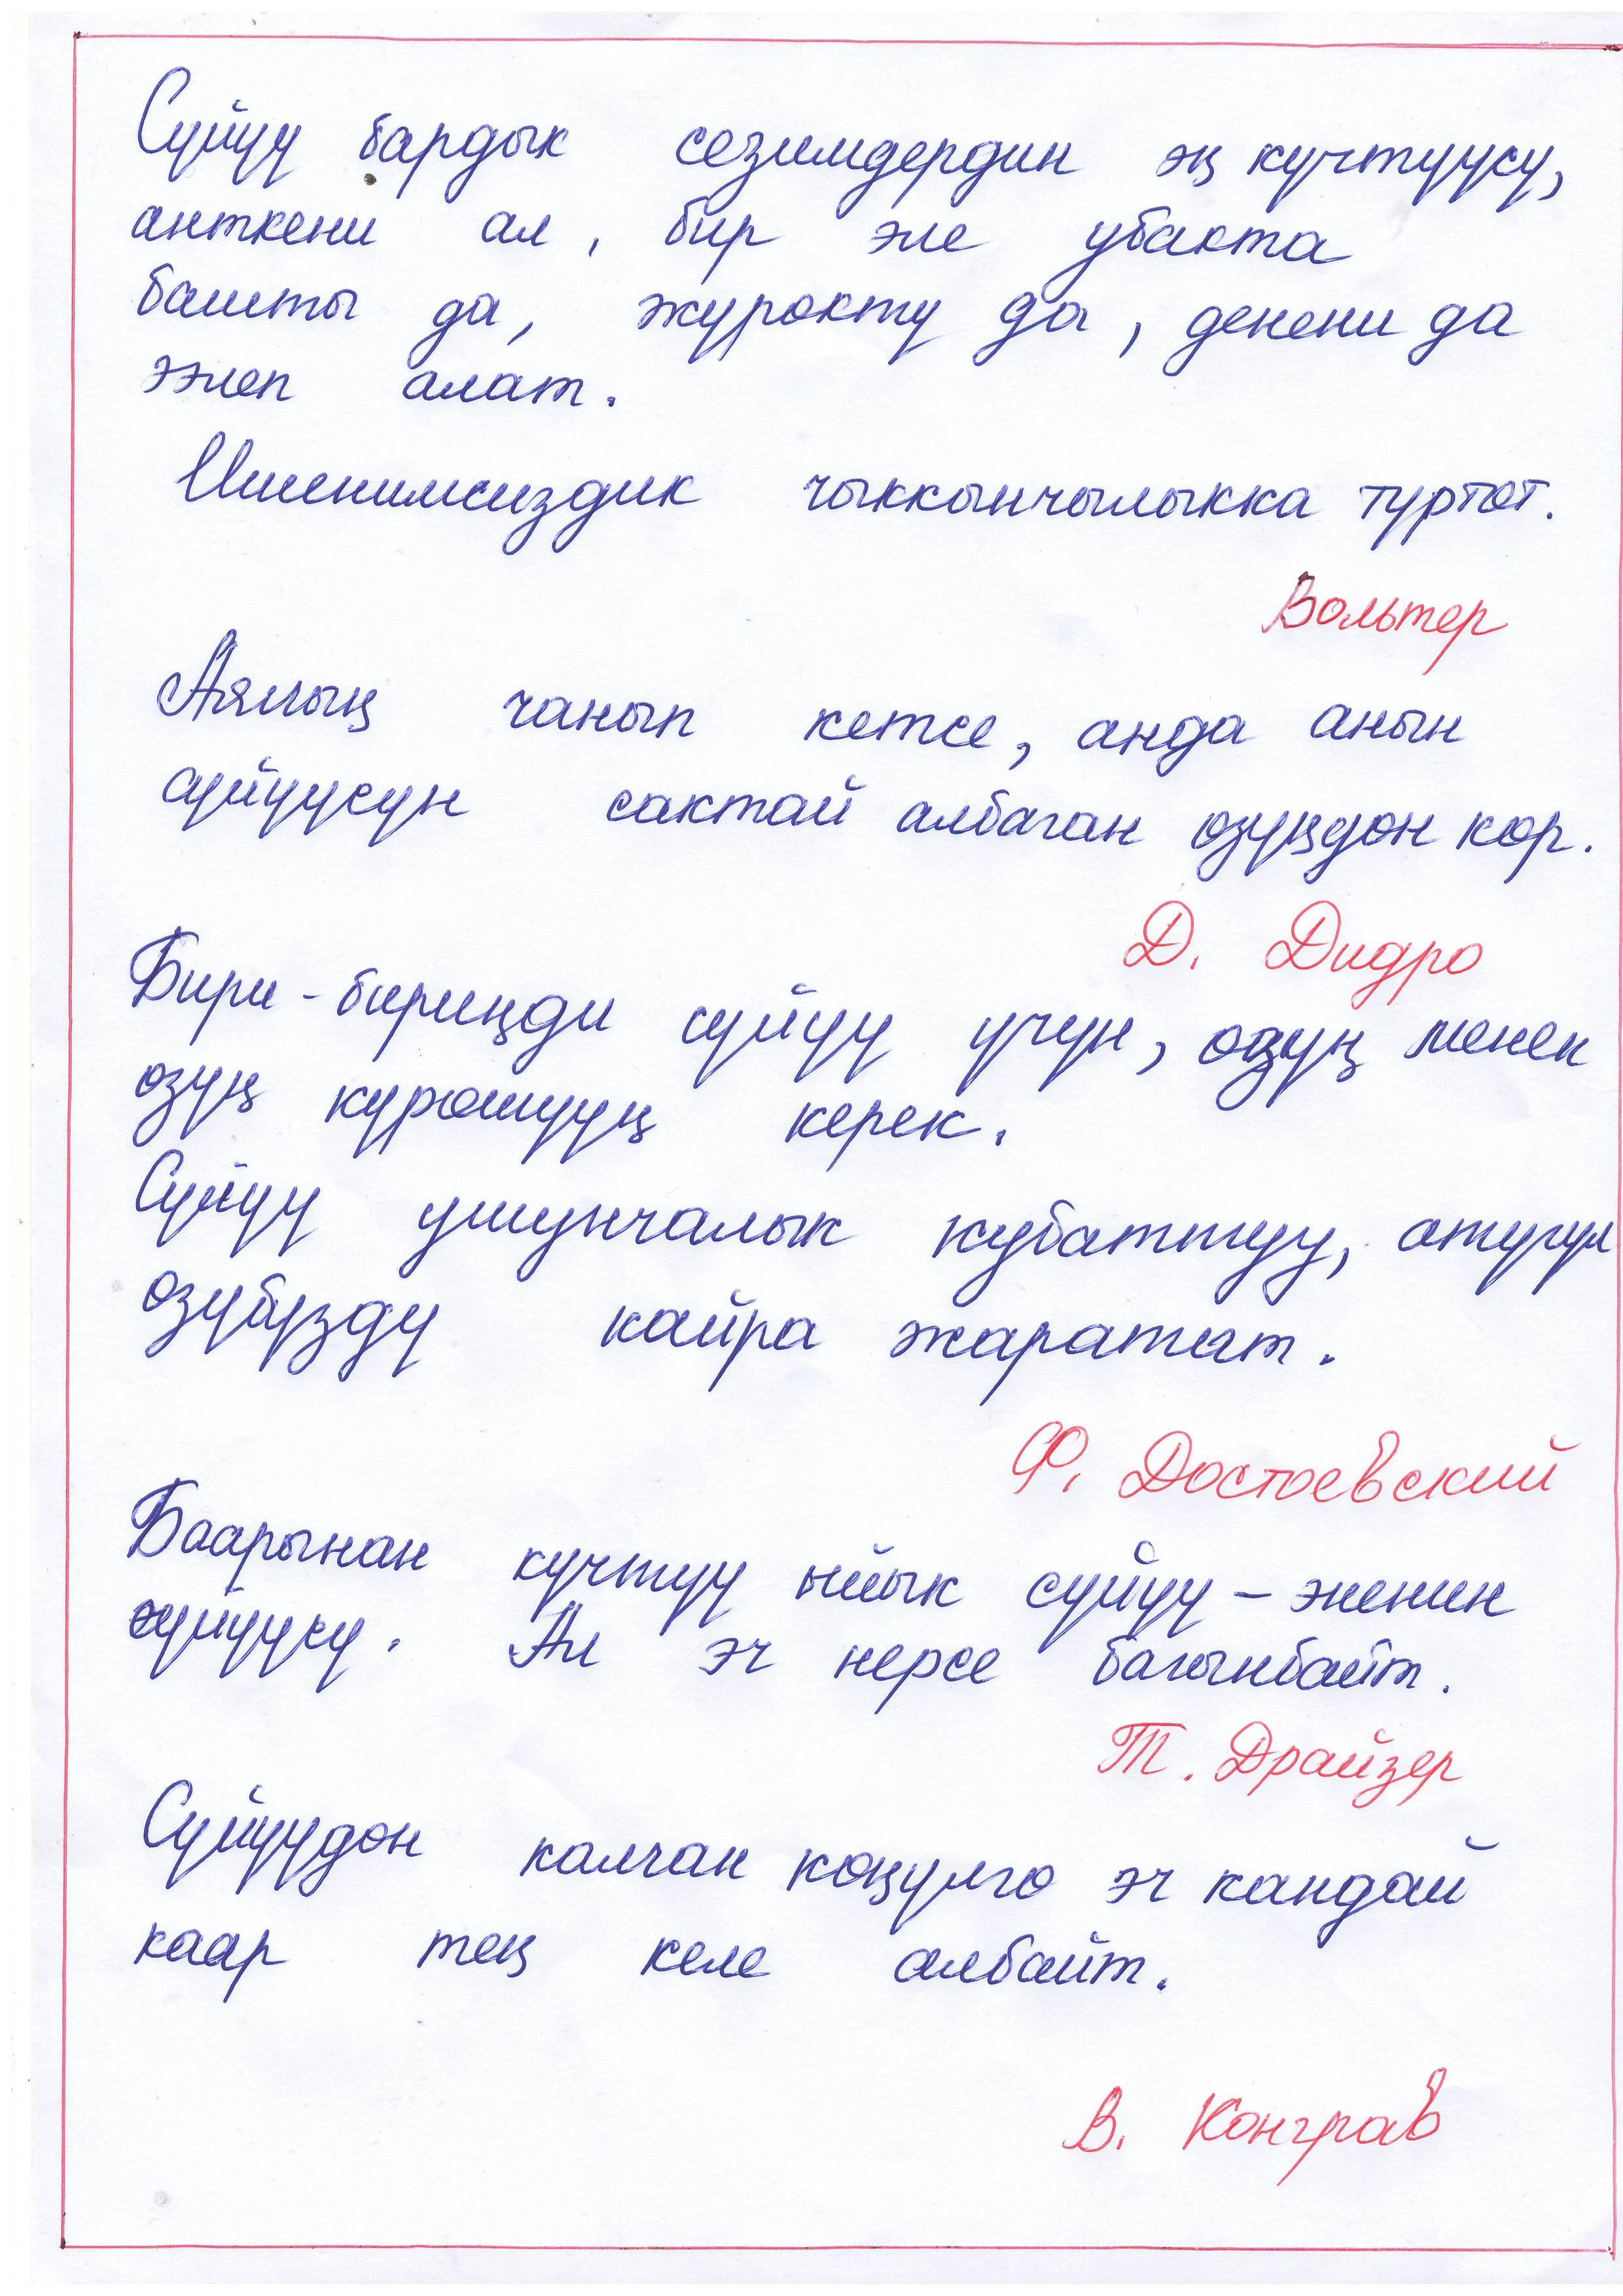 Сүйүү бардык сезимдердин эң күчтүүсү,
анткени ал, бир эле убакта
башты да, жүрөктү да, денени да
ээлеп алат.
Ишенимсиздик чыккынчылыкка түртөт.
Вольтер
Аялың чанып кетсе, анда анын
сүйүүсүн сактай албаган өзүңдөн көр.
Д. Дидро
Бири-бириңди сүйүү үчүн, өзүң менен
өзүң күрөшүүң керек.
Сүйүү ушунчалык кубаттуу, өтүгүл
өзүбүздү кайра жаратат.
Ф. Достоевский
Баарынан күчтүү ыйык сүйүү - эненин
сүйүүсү. Ал эч нерсе багынбайт.
Т. Драйзер
Сүйүүдөн калган көңүлгө эч кандай
каар тең келе албайт.
В. Конграв